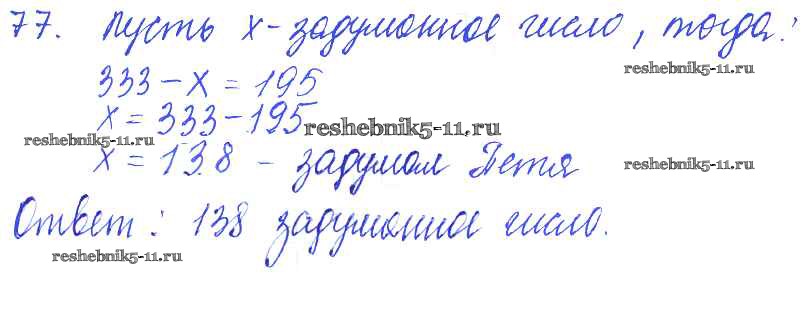 77. Пусть x - задуманное число, тогда:
reshebnik5-11.ru
333 - x = 195
x = 333 - 195
reshebnik5-11.ru
reshebnik5-11.ru
x = 138 - задумал Петя
reshebnik5-11.ru
Ответ: 138 задуманное число.
reshebnik5-11.ru